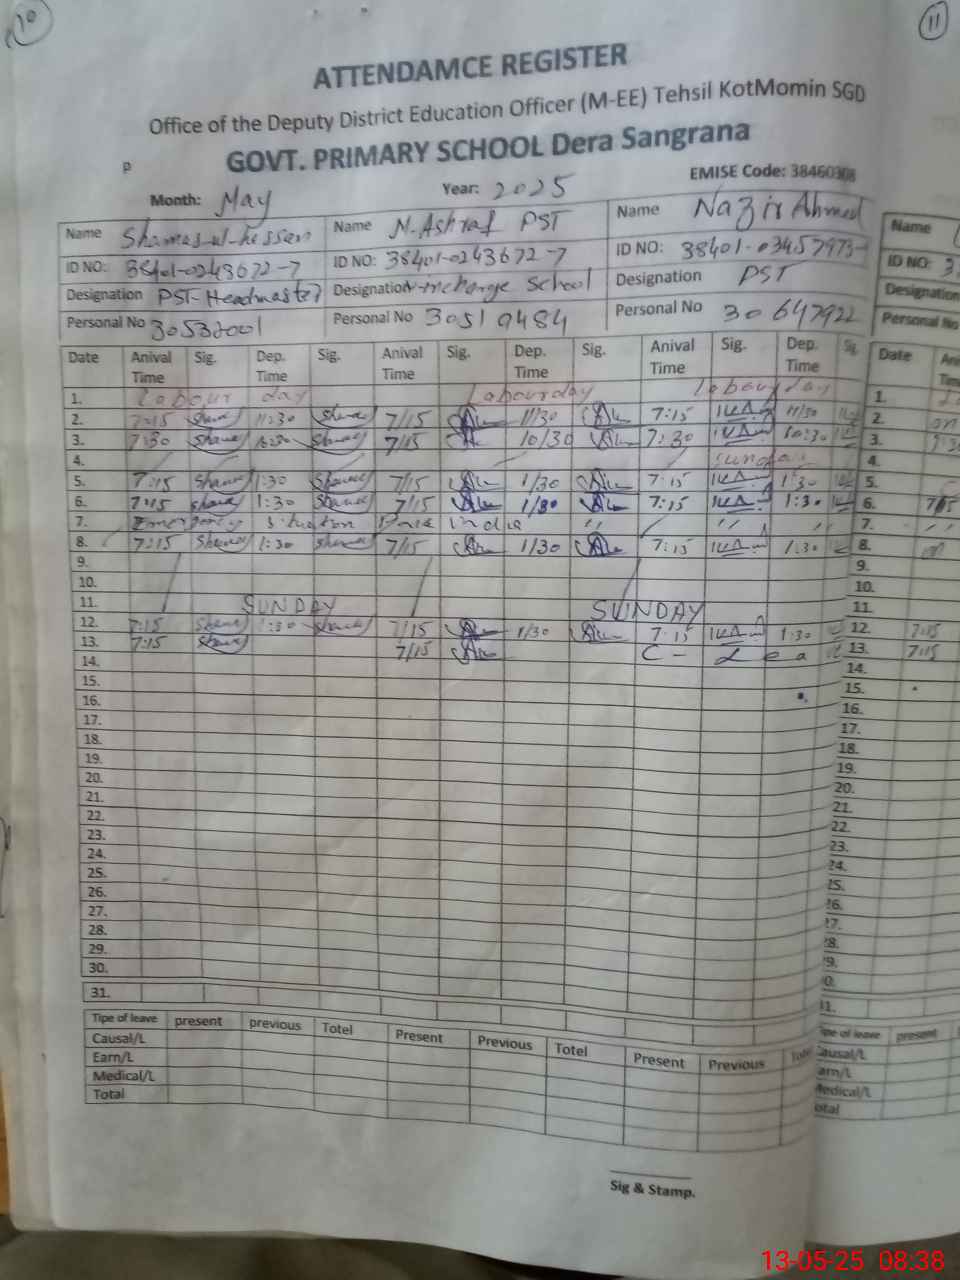 10
11
ATTENDAMCE REGISTER
Office of the Deputy District Education Officer (M-EE) Tehsil KotMomin SGD
P GOVT. PRIMARY SCHOOL Dera Sangrana
Month: May Year: 2025 EMISE Code: 38460308
Name Shamas-ul-hassan Name M. Ashraf PST Name Nazir Ahmed Name
ID NO: 38401-0243672-7 ID NO: 38401-0243672-7 ID NO: 38401-03457973- ID NO: 3
Designation PST-Headmaster Designation Incharge School Designation PST Designation
Personal No 30532001 Personal No 30519484 Personal No 30647922 Personal No
Date Anival Time Sig. Dep. Time Sig. Anival Time Sig. Dep. Time Sig. Anival Time Sig. Dep. Time Sig. Date
1. Labour day Labourday labour day 1.
2. 7:15 Shamas 11:30 Shamas 7/15 11/30 7:15 11/30 2.
3. 7:30 Shamas 10:30 Shamas 7/15 10/30 7:30 10:30 3.
4. Sunday 4.
5. 7:15 Shamas 1:30 Shamas 7/15 1/30 7:15 1:30 5.
6. 7:15 Shamas 1:30 Shamas 7/15 1/30 7:15 1:30 6. 7/15
7. Emergency Situation Pak India " " " 7. "
8. 7:15 Shamas 1:30 Shamas 7/15 1/30 7:15 1:30 8.
9. 9.
10. 10.
11. SUNDAY SUNDAY 11.
12. 7:15 Shamas 1:30 Shamas 7/15 1/30 7:15 1:30 12. 7:15
13. 7:15 Shamas 7/15 C- Lea 13. 7:15
14. 14.
15. 15.
16. 16.
17. 17.
18. 18.
19. 19.
20. 20.
21. 21.
22. 22.
23. 23.
24. 24.
25. 25.
26. 26.
27. 27.
28. 28.
29. 29.
30. 30.
31. 31.
Tipe of leave present previous Totel Present Previous Totel Present Previous Tipe of leave present
Causal/L Causal/L
Earn/L Earn/L
Medical/L Medical/L
Total Total
Sig & Stamp.
13-05-25 08:38